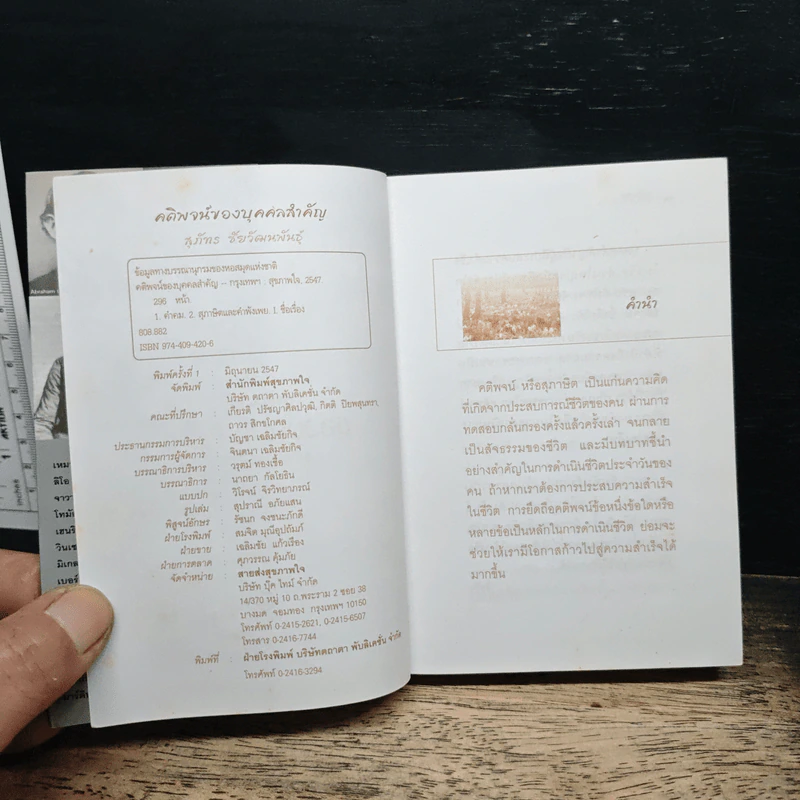 คติพจน์ของบุคคลสำคัญ
สุภัทร ชัยวัฒนพันธุ์
ข้อมูลทางบรรณานุกรมของหอสมุดแห่งชาติ
คติพจน์ของบุคคลสำคัญ – กรุงเทพฯ : สุขภาพใจ, 2547
296 หน้า.
1. คำคม. 2. สุภาษิตและคำพังเพย. I. ชื่อเรื่อง
808.882
ISBN 974-409-420-6
พิมพ์ครั้งที่ 1 : มิถุนายน 2547
จัดพิมพ์ : สำนักพิมพ์สุขภาพใจ
บริษัท ตถาตา พับลิเคชั่น จำกัด
คณะที่ปรึกษา : เกียรติ ปรัชญาศิลปวุฒิ, กิตติ ปิยพสุนทรา,
ถาวร สิกขโกศล
ประธานกรรมการบริหาร : บัญชา เฉลิมชัยกิจ
กรรมการผู้จัดการ : จินตนา เฉลิมชัยกิจ
บรรณาธิการบริหาร : วรุตม์ ทองเชื้อ
บรรณาธิการ : นาถยา กัลโยธิน
แบบปก : วิโรจน์ จิรวิทยาภรณ์
รูปเล่ม : สุปราณี อภัยแสน
พิสูจน์อักษร : รัชนก จงชนะภักดี
ฝ่ายโรงพิมพ์ : สมจิต มุณีอุปถัมภ์
ฝ่ายขาย : เฉลิมชัย แก้วเรือง
ฝ่ายการตลาด : ศุภวรรณ คุ้มภัย
จัดจำหน่าย : สายส่งสุขภาพใจ
บริษัท บุ๊ค ไทม์ จำกัด
14/370 หมู่ 10 ถ.พระราม 2 ซอย 38
บางมด จอมทอง กรุงเทพฯ 10150
โทรศัพท์ 0-2415-2621, 0-2415-6507
โทรสาร 0-2416-7744
พิมพ์ที่ : ฝ่ายโรงพิมพ์ บริษัทตถาตา พับลิเคชั่น จำกัด
โทรศัพท์ 0-2416-3294
คำนำ
คติพจน์ หรือสุภาษิต เป็นแก่นความคิด
ที่เกิดจากประสบการณ์ชีวิตของคน ผ่านการ
ทดสอบกลั่นกรองครั้งแล้วครั้งเล่า จนกลาย
เป็นสัจธรรมของชีวิต และมีบทบาทชี้นำ
อย่างสำคัญในการดำเนินชีวิตประจำวันของ
คน ถ้าหากเราต้องการประสบความสำเร็จ
ในชีวิต การยึดถือคติพจน์ข้อหนึ่งข้อใดหรือ
หลายข้อเป็นหลักในการดำเนินชีวิต ย่อมจะ
ช่วยให้เรามีโอกาสก้าวไปสู่ความสำเร็จได้
มากขึ้น
Abraham
เหมา
ลีโอ
จาวา
โทมัส
เฮนรี
วินเซ
มิเกล
เบอร์